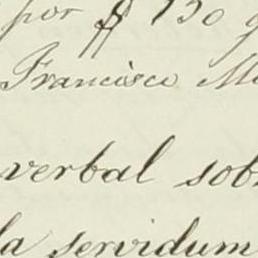 por $ 130
Francisco M
verbal sob
la servidum